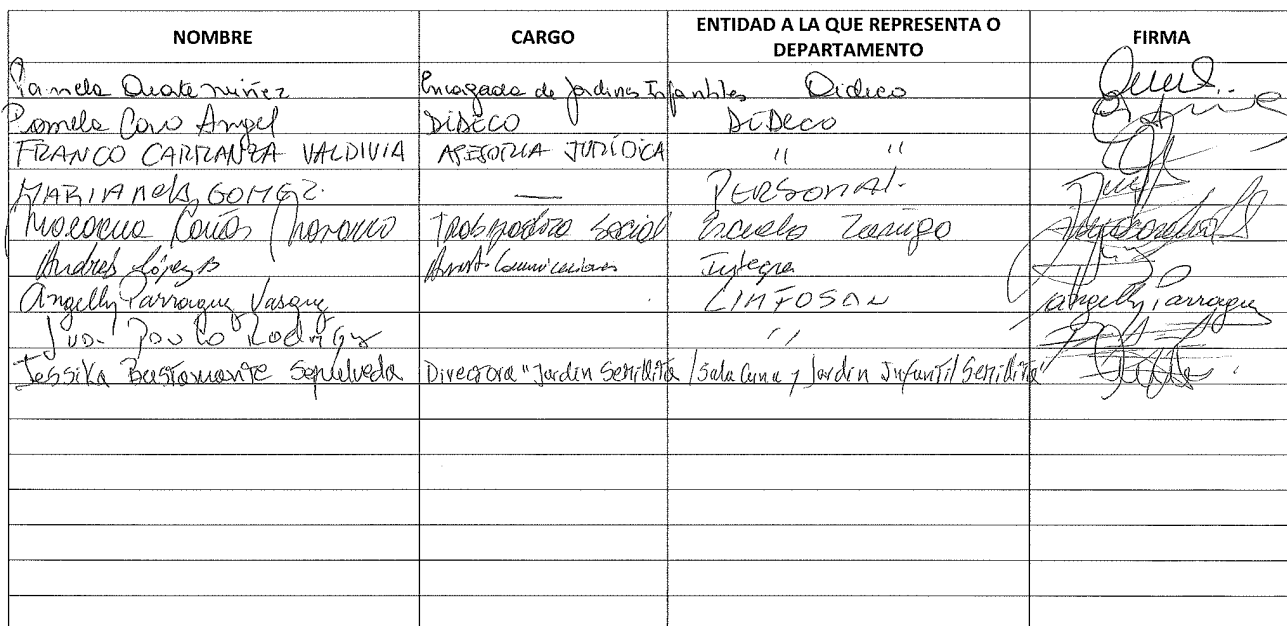 NOMBRE CARGO ENTIDAD A LA QUE REPRESENTA O DEPARTAMENTO FIRMA
Pamela Oñate Núñez Encargada de Jardines Infantiles Dideco
Pamela Caro Angel DIDECO DIDECO
FRANCO CARRANZA VALDIVIA ASESORIA JURÍDICA " "
MARIANELA GOMEZ. — PERSONAL.
Macarena Social Escuela
Andrés López B Comunicaciones Integra
Angelly Parraguez Vasquez Angelly Parraguez
Juan Paulo Rodriguez "
Jessika Bustamante Sepulveda Directora "Jardin Semillita" / Sala Cuna y Jardin Infantil Semillita"